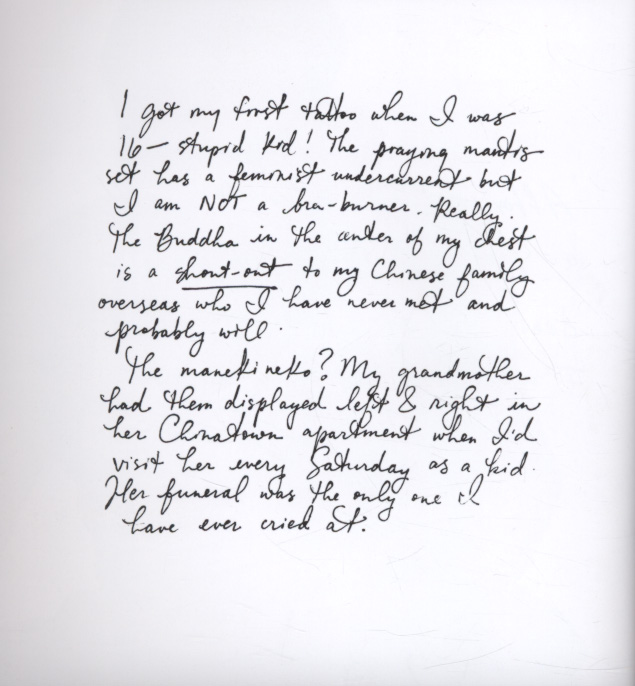 I got my first tattoo when I was
16 – stupid kid! The praying mantis
set has a feminist undercurrent but
I am NOT a bra-burner. Really.
The Buddha in the center of my chest
is a shout-out to my Chinese family
overseas who I have never met and
probably will.
The maneki neko? My grandmother
had them displayed left & right in
her Chinatown apartment when I'd
visit her every Saturday as a kid.
Her funeral was the only one I
have ever cried at.